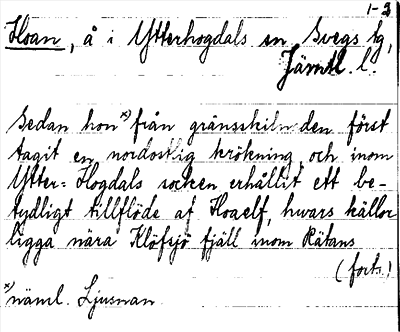 1-3
Hoan, å i Ytterhogdals sn, Svegs tg,
Jämtl. l.
Sedan hon x) från gränsskilnaden först
tagit en nordostlig krökning, och inom
Ytter-Hogdals socken erhållit ett be-
tydligt tillflöde af Hoaelf, hwars källor
ligga nära Klöfsjö fjäll inom Rätans
(forts.)
x) näml. Ljusnan